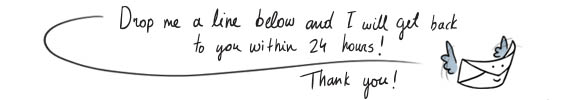 Drop me a line below and I will get back
to you within 24 hours!
Thank you!